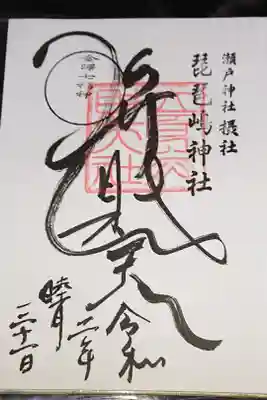 瀬戸神社 摂社
琵琶嶋神社
辨財天
令和
二年
睦月
三十一日
金澤七福神